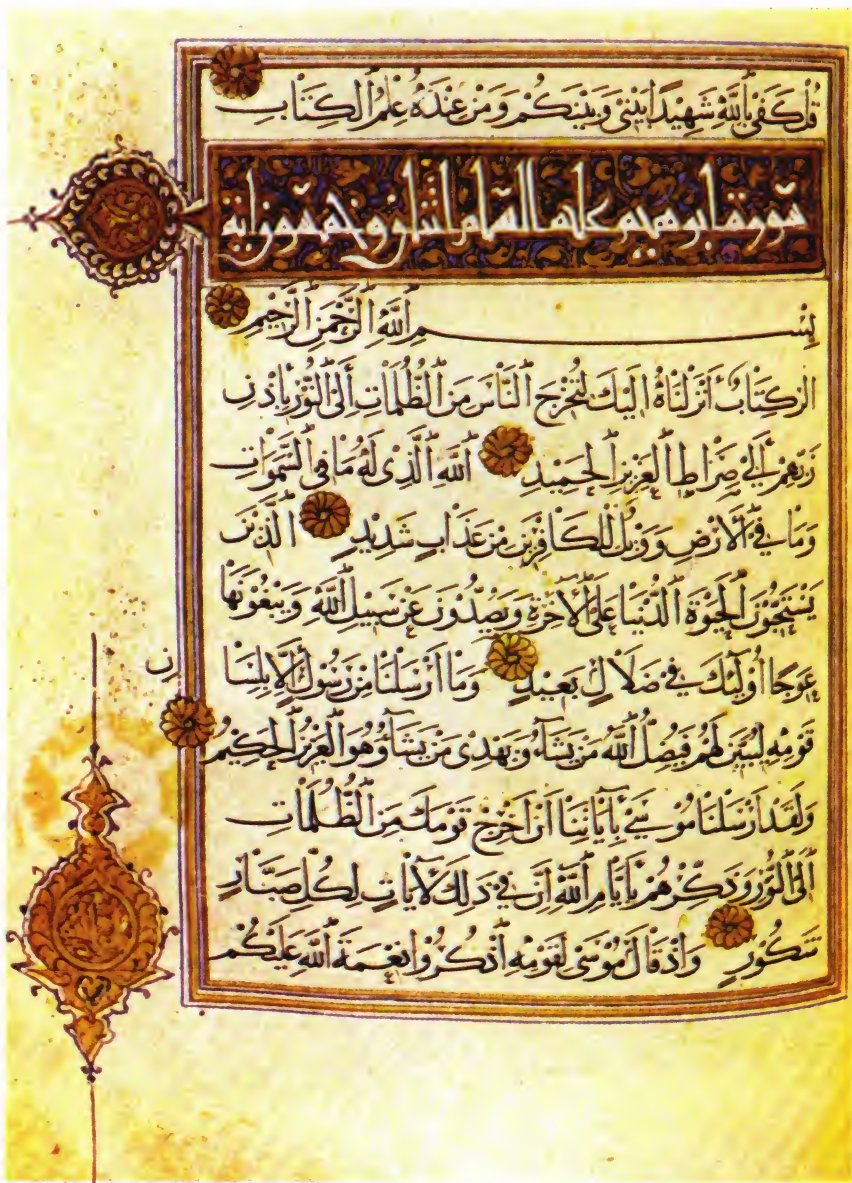 قُلْ كَفَىٰ بِٱللَّهِ شَهِيدًا بَيْنِي وَبَيْنَكُمْ وَمَنْ عِنْدَهُ عِلْمُ ٱلْكِتَابِ
سورة ابرهيم عليه السلام اثنان وخمسون اية
بِسْمِ ٱللَّهِ ٱلرَّحْمَٰنِ ٱلرَّحِيمِ
الر كِتَابٌ أَنْزَلْنَاهُ إِلَيْكَ لِتُخْرِجَ ٱلنَّاسَ مِنَ ٱلظُّلُمَاتِ إِلَى ٱلنُّورِ بِإِذْنِ
رَبِّهِمْ إِلَىٰ صِرَاطِ ٱلْعَزِيزِ ٱلْحَمِيدِ ٱللَّهِ ٱلَّذِي لَهُ مَا فِي ٱلسَّمَوَاتِ
وَمَا فِي ٱلْأَرْضِ وَوَيْلٌ لِلْكَافِرِينَ مِنْ عَذَابٍ شَدِيدٍ ٱلَّذِينَ
يَسْتَحِبُّونَ ٱلْحَيَوٰةَ ٱلدُّنْيَا عَلَى ٱلْآخِرَةِ وَيَصُدُّونَ عَنْ سَبِيلِ ٱللَّهِ وَيَبْغُونَهَا
عِوَجًا أُولَٰئِكَ فِي ضَلَالٍ بَعِيدٍ وَمَا أَرْسَلْنَا مِنْ رَسُولٍ إِلَّا بِلِسَانِ
قَوْمِهِ لِيُبَيِّنَ لَهُمْ فَيُضِلُّ ٱللَّهُ مَنْ يَشَاءُ وَيَهْدِي مَنْ يَشَاءُ وَهُوَ ٱلْعَزِيزُ ٱلْحَكِيمُ
وَلَقَدْ أَرْسَلْنَا مُوسَىٰ بِآيَاتِنَا أَنْ أَخْرِجْ قَوْمَكَ مِنَ ٱلظُّلُمَاتِ
إِلَى ٱلنُّورِ وَذَكِّرْهُمْ بِأَيَّامِ ٱللَّهِ إِنَّ فِي ذَلِكَ لَآيَاتٍ لِكُلِّ صَبَّارٍ
شَكُورٍ وَإِذْ قَالَ مُوسَىٰ لِقَوْمِهِ ٱذْكُرُوا نِعْمَةَ ٱللَّهِ عَلَيْكُمْ